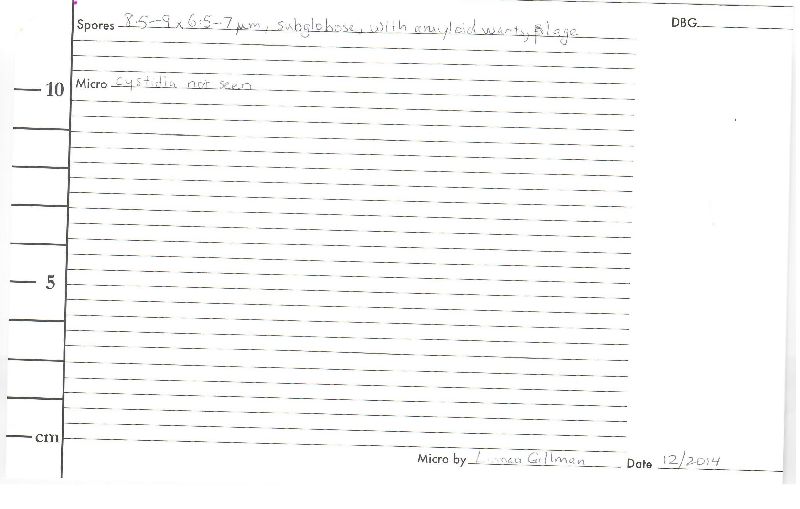 Spores 8.5-9 x 6.5-7 µm, subglobose, with amyloid warts,
DBG
Micro cystidia not seen
10
5
cm
Micro by Gillman Date 12/2014